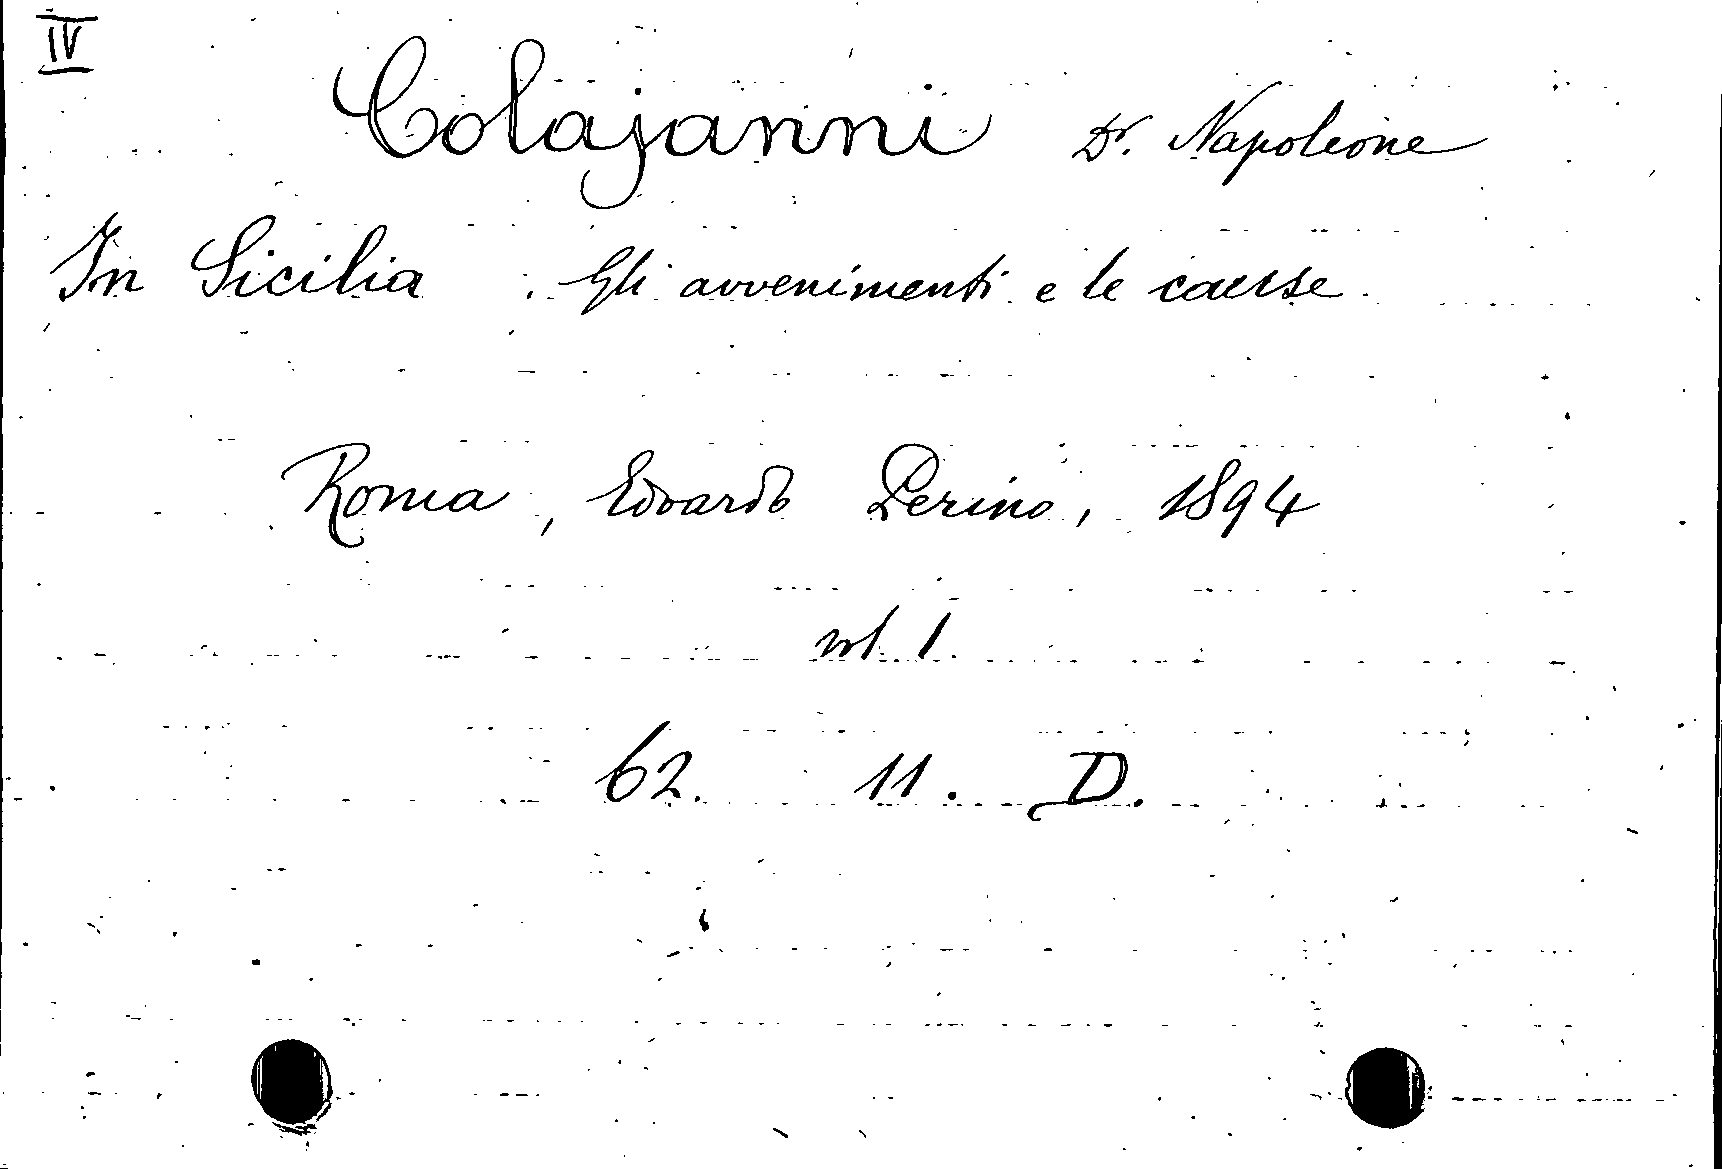 IV
Colajanni Dr. Napoleone
In Sicilia. Gli avvenimenti e le cause
Roma, Edoardo Perino, 1894
vol. 1.
62. 11. D.